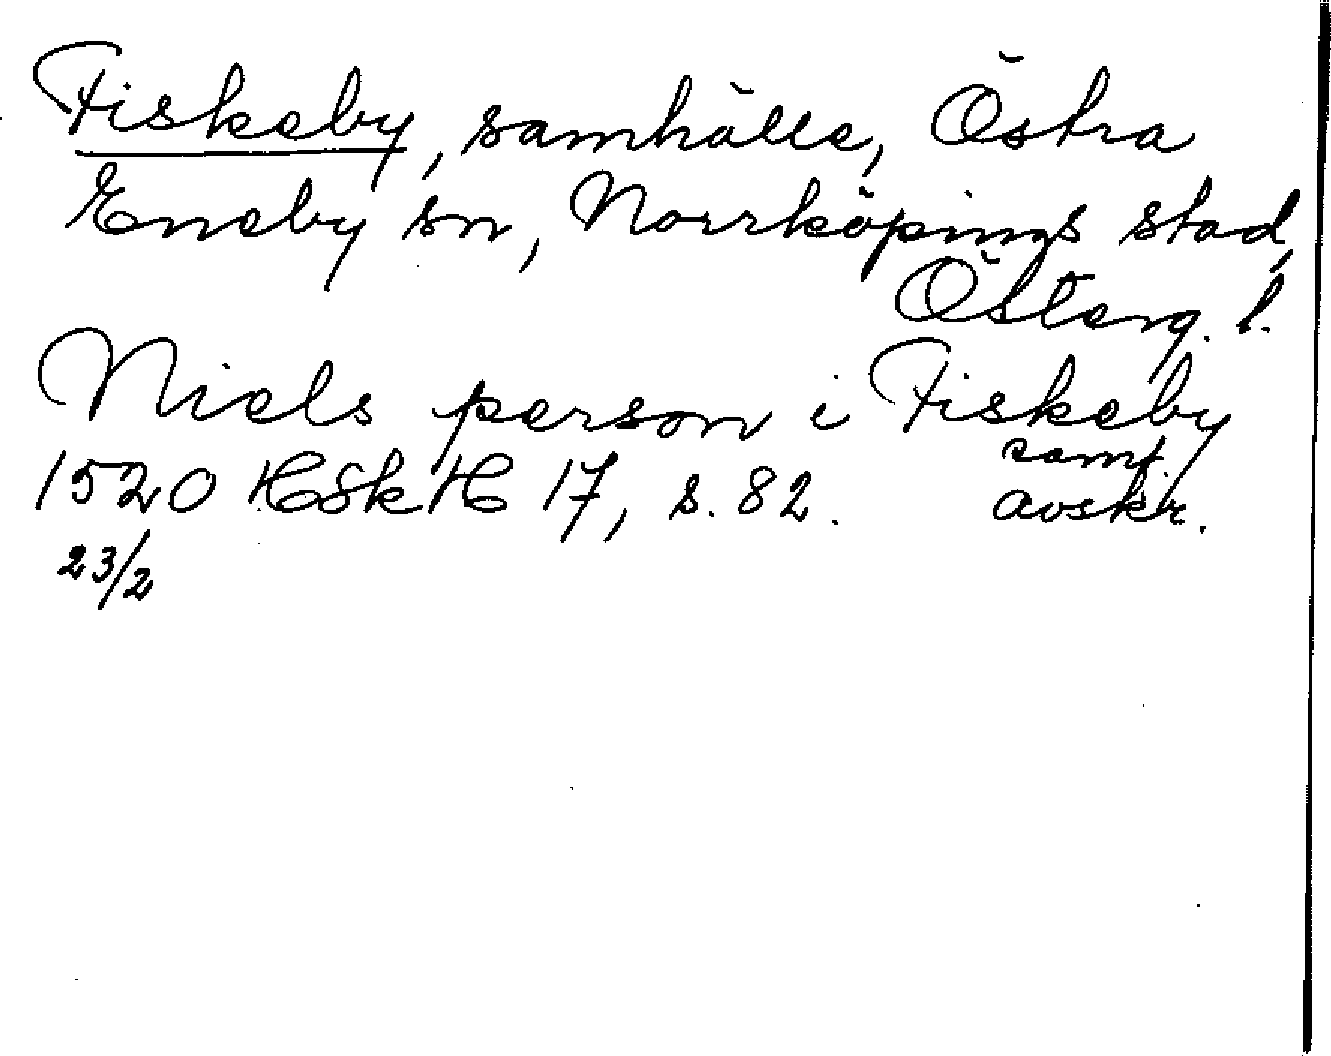 Fiskeby, samhälle, Östra
Eneby sn, Norrköpings stad,
Österg. l.
Niels person i Fiskeby
1520 HSkH 17, s. 82. samt.
avskr.
23/2